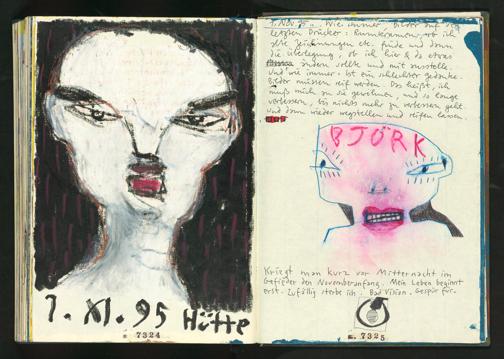 1. XI. 95 Hütte
7324
1. Nov 95. Wie immer Bilder auf den
letzten Drücker: Rumkramen, ob ich
alte Zeichnungen etc. finde und dann
die Überlegung, ob ich hier & da etwas
ändern sollte und mit ausstelle.
Und wie immer: Ist ein schlechter Gedanke.
Bilder müssen reif werden. Das heißt, ich
muß mich an sie gewöhnen, und so lange
verbessern, bis nichts mehr zu verbessern geht
und dann wieder wegstellen und reifen lassen.
BJÖRK
Kriegt man kurz vor Mitternacht im
Gefieder den Novemberanfang. Mein Leben beginnt
erst. Zufällig sterbe ich. Bad Vision. Gespür für.
7325